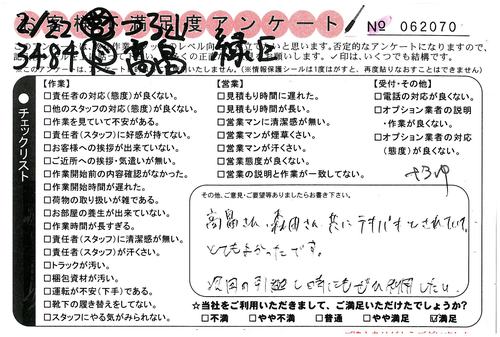 お客様不満足度アンケート
No 062070
2/22
3484
緑区
※このアンケート
(※情報保護シールは1度はがすと、再度貼りなおすことはできません)
チェックリスト
【作業】
□責任者の対応(態度)が良くない。
□他のスタッフの対応(態度)が良くない。
□作業を見ていて不安がある。
□責任者(スタッフ)に好感が持てない。
□お客様への挨拶が出来ていない。
□ご近所への挨拶・気遣いが無い。
□作業開始前の内容確認がなかった。
□作業開始時間が遅れた。
□荷物の取り扱いが雑である。
□お部屋の養生が出来ていない。
□作業時間が長すぎる。
□責任者(スタッフ)に清潔感が無い。
□責任者(スタッフ)が汗くさい。
□トラックが汚い。
□梱包資材が汚い。
□運転が不安(下手)である。
□靴下の履き替えをしてない。
□スタッフにやる気がみられない。
【営業】
□見積もり時間に遅れた。
□見積もり時間が長い。
□営業マンに清潔感が無い。
□営業マンが煙草くさい。
□営業マンが汗くさい。
□営業態度が良くない。
□営業の説明と作業が一致してない。
【受付・その他】
□電話の対応が良くない。
□オプション業者の説明
・作業が良くない。
□オプション業者の対応
(態度)が良くない。
その他、ご意見・ご要望等ありましたらお書き下さい。
高畠さん、森田さん 共にテキパキとされていて
とてもよかったです。
次回の引越し時にもぜひ利用したい。
☆当社をご利用いただきまして、ご満足いただけたでしょうか?
□不満 □やや不満 □普通 □やや満足 ☑満足